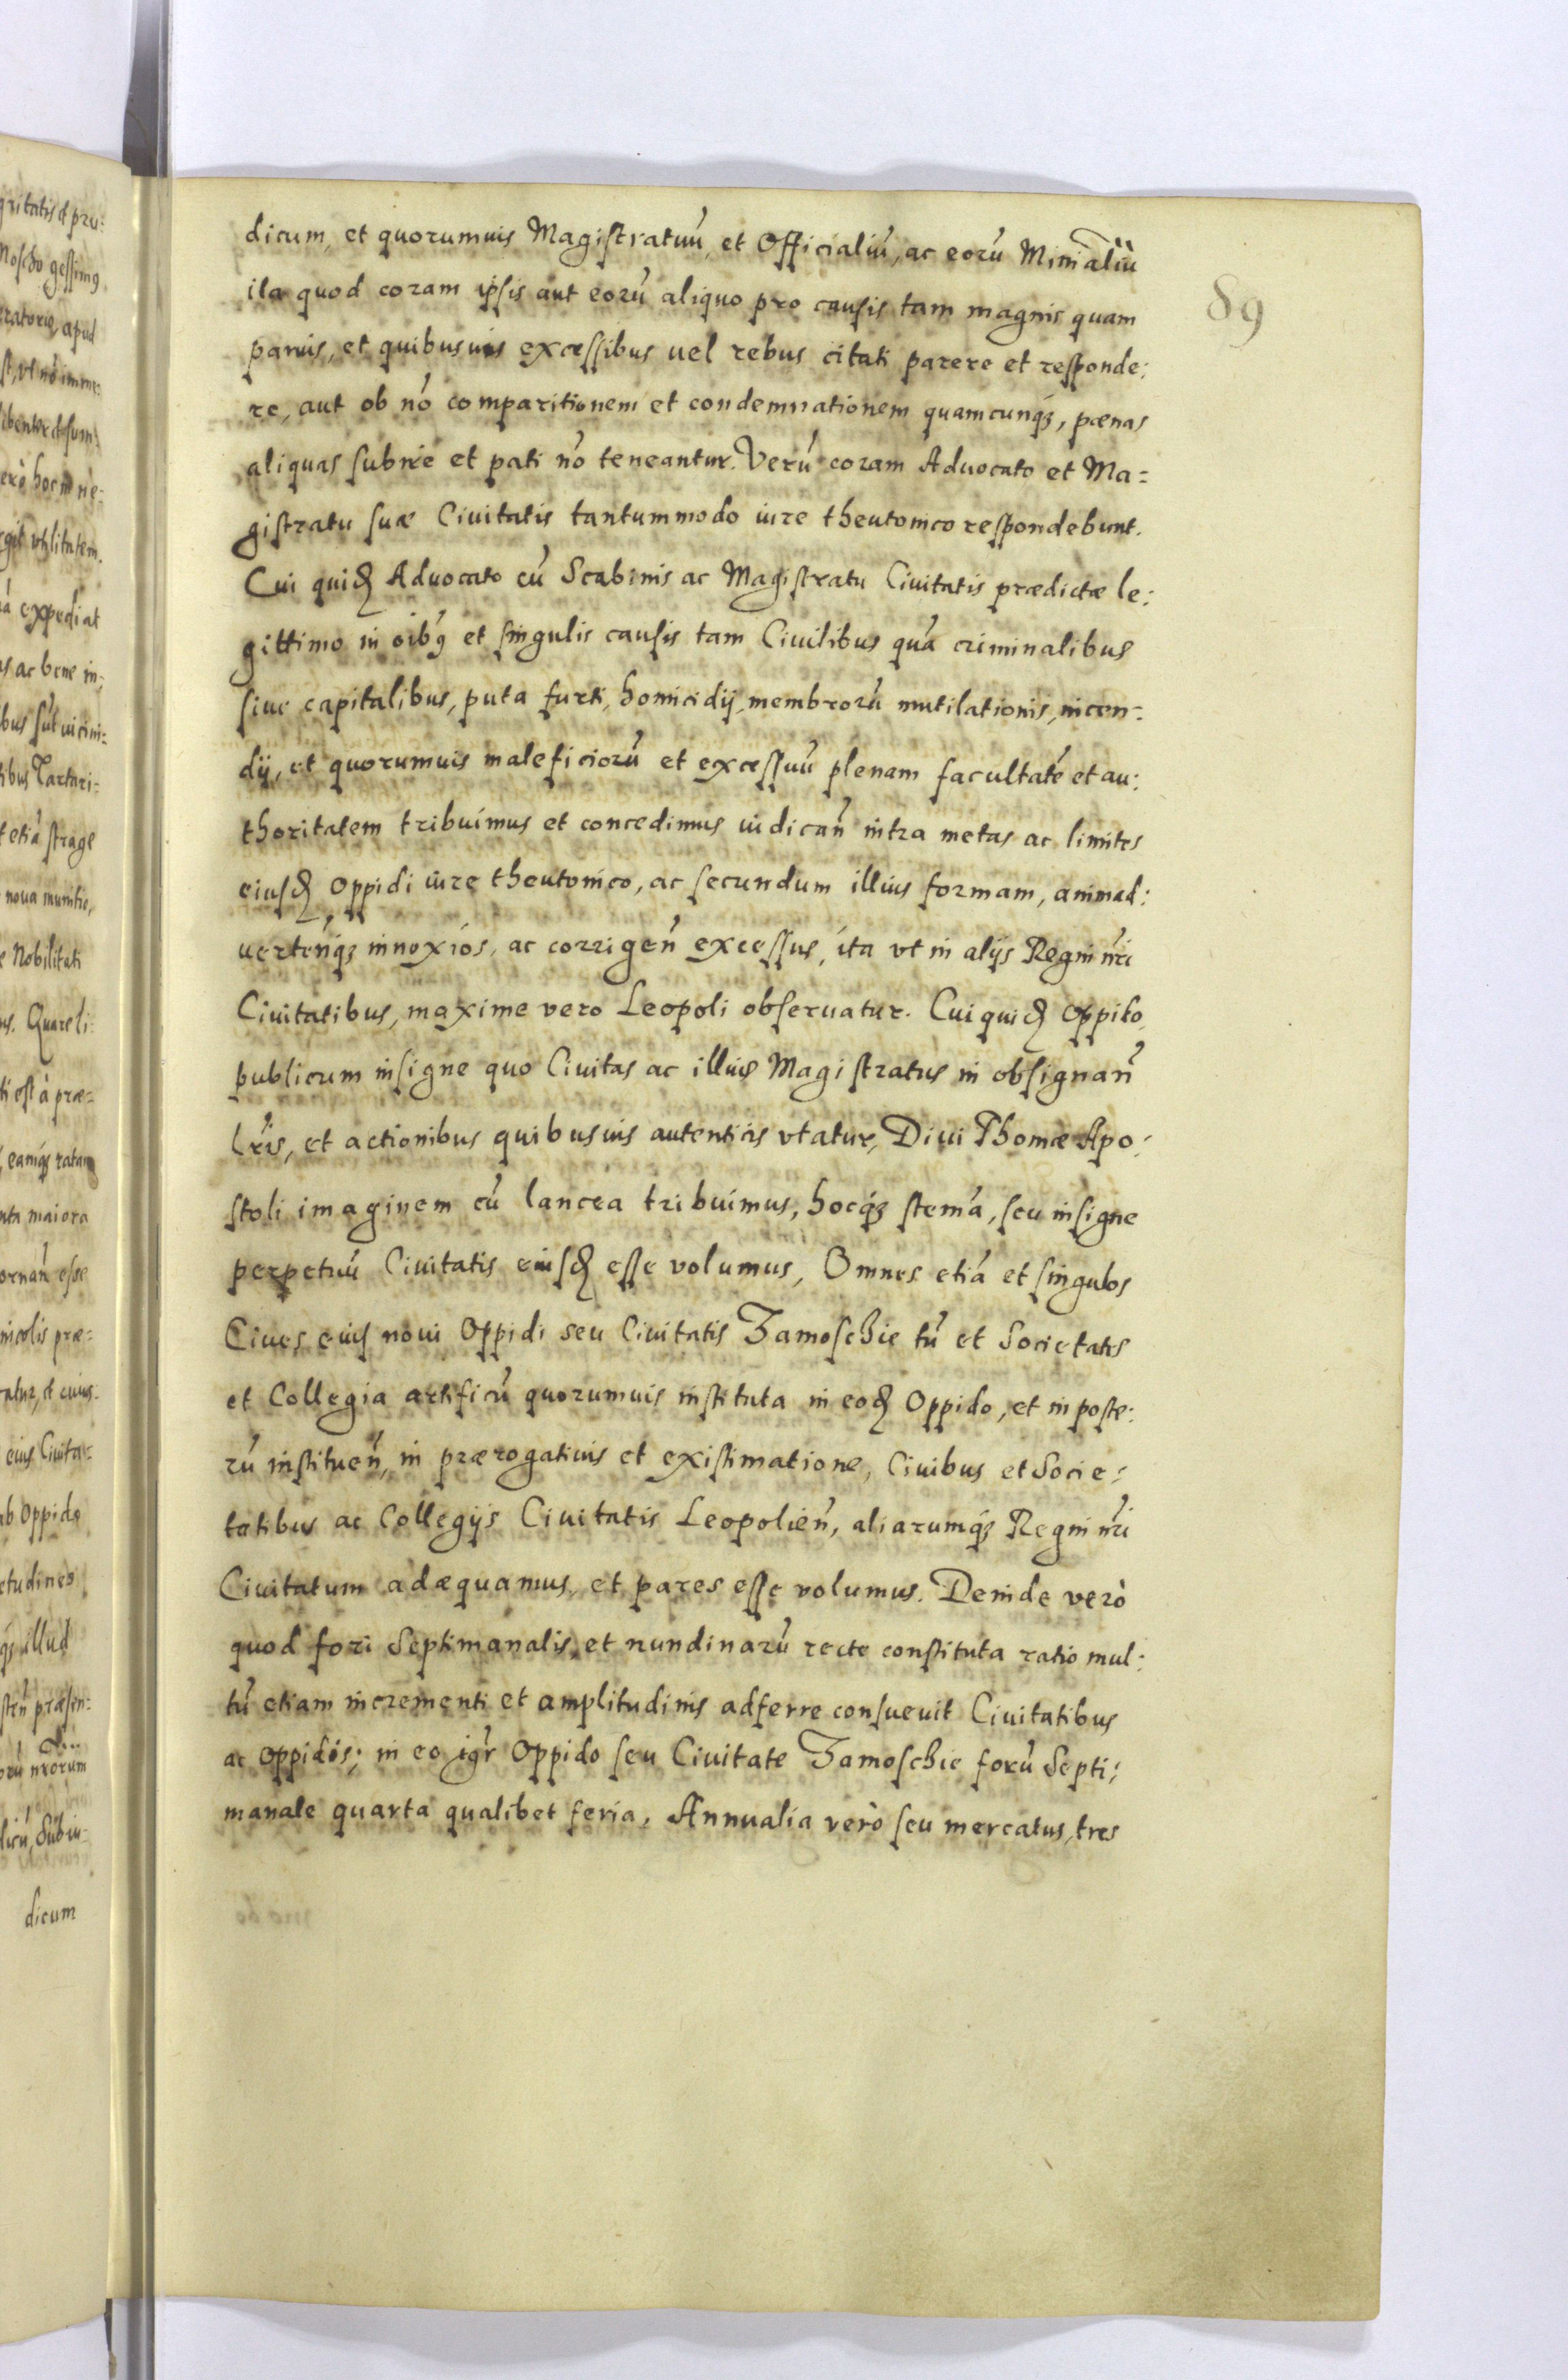 89
dicum, et quorumuis Magistratuũ, et Officialiũ, ac eorũ Mini͠aliũ
ita quod coram ipsis aut eorũ aliquo pro causis tam magnis quam
paruis, et quibusuis excessibus uel rebus citati parere et responde:
re, aut ob nõ comparitionem et condemnationem quamcunq́ꝫ, pœnas
aliquas subire et pati nõ teneantur. Verũ coram Aduocato et Ma=
gistratu suæ Ciuitatis tantummodo iure theutonico respondebunt.
Cui quid̃ Aduocato cũ Scabinis ac Magistratu Ciuitatis prædictæ le:
gittimo in oĩbꝰ et singulis causis tam Ciuilibus quã criminalibus
siue capitalibus, puta furti, homicidij, membrorũ mutilationis, incen=
dij, et quorumuis maleficiorũ et excessuũ plenam facultatẽ et au:
thoritatem tribuimus et concedimus iudicañ intra metas ac limites
eiusd̃ Oppidi iure theutonico, ac secundum illius formam, animad:
uerteñq́ꝫ innoxios, ac corrigeñ excessus, ita vt in alijs Regni nr̃i
Ciuitatibus, maxime vero Leopoli obseruatur. Cui quid̃ Oppido
publicum insigne quo Ciuitas ac illius Magistratus in obsignañ
lr̃is, et actionibus quibusuis autenticis vtatur, Diui Thomæ Apo:
stoli imaginem cũ lancea tribuimus, hocq́ꝫ stem̃a, seu insigne
perpetuũ Ciuitatis eiusd̃ esse volumus, Omnes etiã et singulos
Ciues eius noui Oppidi seu Ciuitatis Zamoschie tũ et Societates
et Collegia artificũ quorumuis instituta in eod̃ Oppido, et in poste:
rũ instituen̄, in prærogatiuis et existimatione, Ciuibus et Socie:
tatibus ac Collegijs Ciuitatis Leopolieñ, aliarumq́ꝫ Regni nr̃i
Ciuitatum adæquamus, et pares esse volumus. Deinde verò
quod fori Septimanalis, et nundinarũ recte constituta ratio mul:
tũ etiam incrementi et amplitudinis adferre consueuit Ciuitatibus
ac Oppidis; in eo igr̃ Oppido seu Ciuitate Zamoschie forũ Septi:
manale quarta qualibet feria, Annualia verò seu mercatus, tres